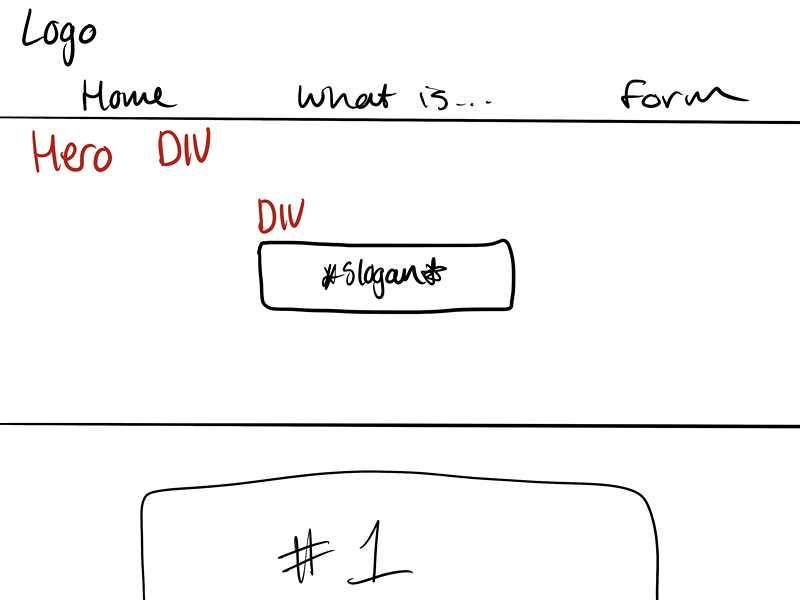 Logo
Home What is... Form
Hero DIV
DIV
*Slogan*
#1